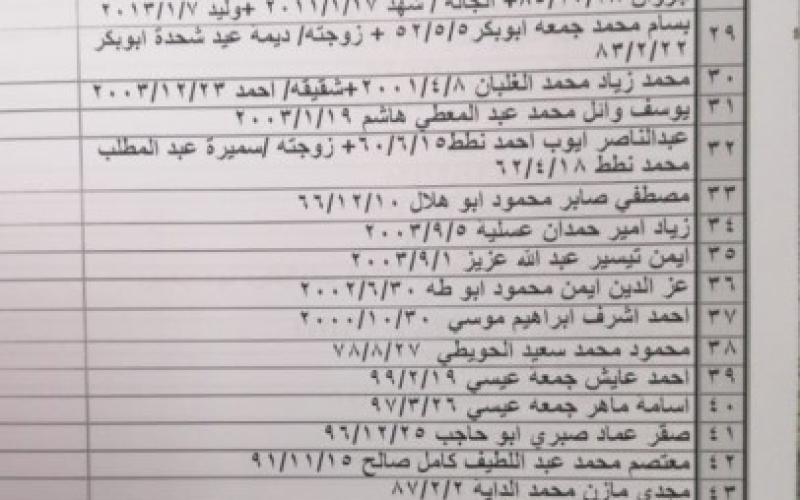 ٢٠١١/١/١٧ +وليد ٢٠١٣/١/٧
٢٩ بسام محمد جمعه ابوبكر ٥٢/٥/٥ + زوجته/ ديمة عيد شحدة ابوبكر
٨٣/٢/٢٢
٣٠ محمد زياد محمد الغلبان ٢٠٠١/٤/٨+شقيقه/ احمد ٢٠٠٣/١٢/٢٣
٣١ يوسف وائل محمد عبد المعطي هاشم ٢٠٠٣/١/١٩
٣٢ عبدالناصر ايوب احمد نطط٦٠/٦/١٥+ زوجته /سميرة عبد المطلب
محمد نطط ٦٢/٤/١٨
٣٣ مصطفي صابر محمود ابو هلال ٦٦/١٢/١٠
٣٤ زياد امير حمدان عسلية ٢٠٠٣/٩/٥
٣٥ ايمن تيسير عبد الله عزيز ٢٠٠٣/٩/١
٣٦ عز الدين ايمن محمود ابو طه ٢٠٠٢/٦/٣٠
٣٧ احمد اشرف ابراهيم موسي ٢٠٠٠/١٠/٣٠
٣٨ محمود محمد سعيد الحويطي ٧٨/٨/٢٧
٣٩ احمد عايش جمعه عيسي ٩٩/٢/١٩
٤٠ اسامه ماهر جمعه عيسي ٩٧/٣/٢٦
٤١ صقر عماد صبري ابو حاجب ٩٦/١٢/٢٥
٤٢ معتصم محمد عبد اللطيف كامل صالح ٩١/١١/١٥
٤٣ مجدي مازن محمد الداية ٨٧/٢/٢